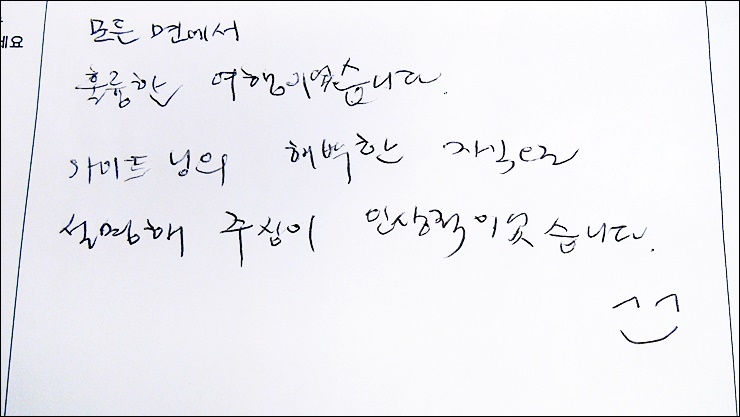 세요
모든 면에서
훌륭한 여행이었습니다.
가이드님의 해박한 지식으로
설명해 주심이 인상적이었습니다.